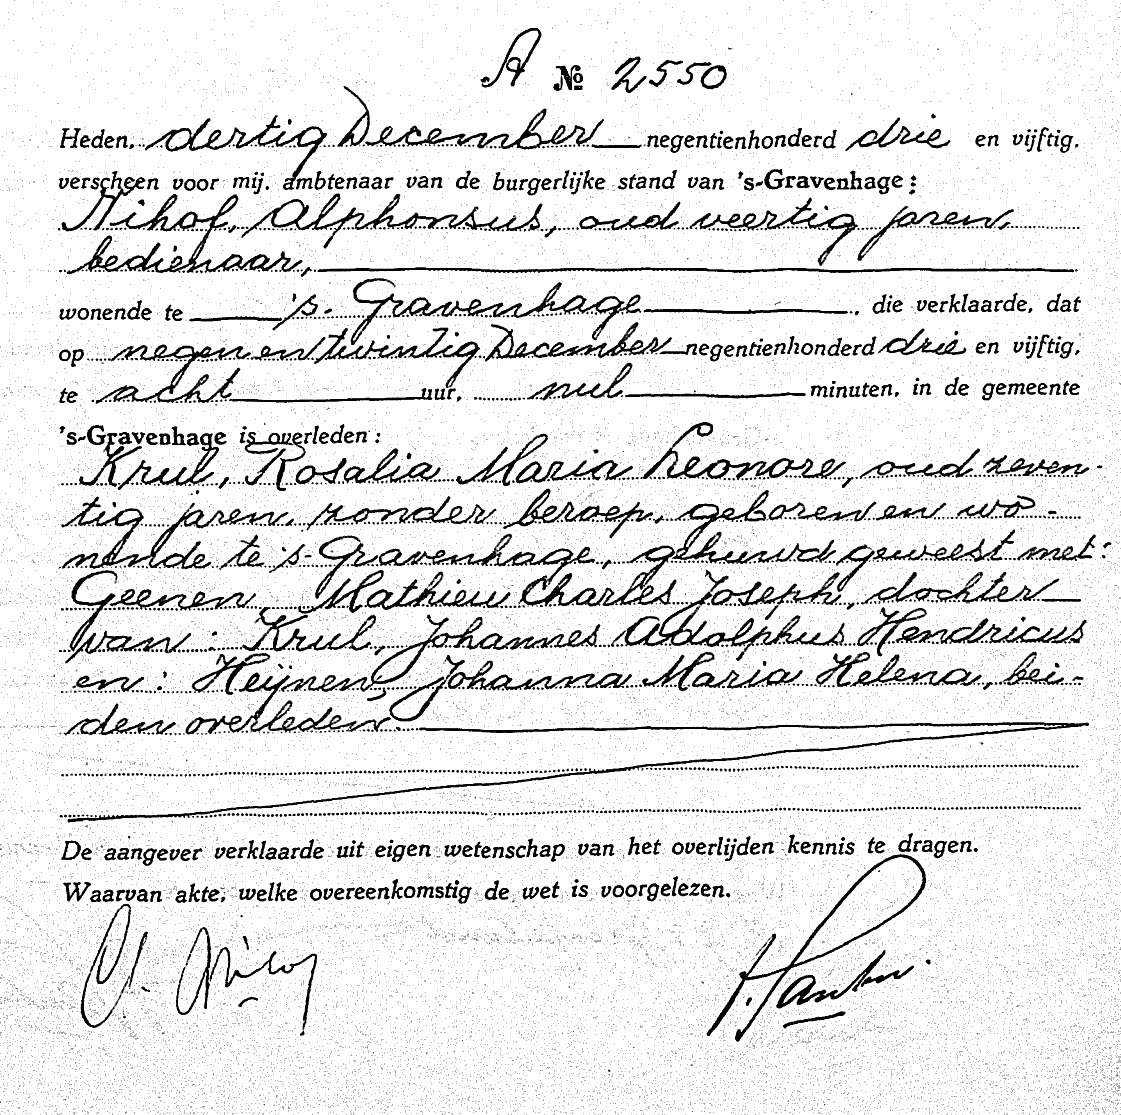 A № 2550
Heden, dertig December negentienhonderd drie en vijftig,
verscheen voor mij, ambtenaar van de burgerlijke stand van 's-Gravenhage:
Nihof, Alphonsus, oud veertig jaren,
bedienaar,
wonende te 's-Gravenhage, die verklaarde, dat
op negen en twintig December negentienhonderd drie en vijftig,
te acht uur, nul minuten, in de gemeente
's-Gravenhage is overleden:
Krul, Rosalia Maria Leonore, oud zeven-
tig jaren, zonder beroep, geboren en wo-
nende te 's-Gravenhage, gehuwd geweest met:
Geenen, Mathieu Charles Joseph, dochter
van: Krul, Johannes Adolphus Hendricus
en: Heijnen, Johanna Maria Helena, bei-
den overleden.
De aangever verklaarde uit eigen wetenschap van het overlijden kennis te dragen.
Waarvan akte, welke overeenkomstig de wet is voorgelezen.